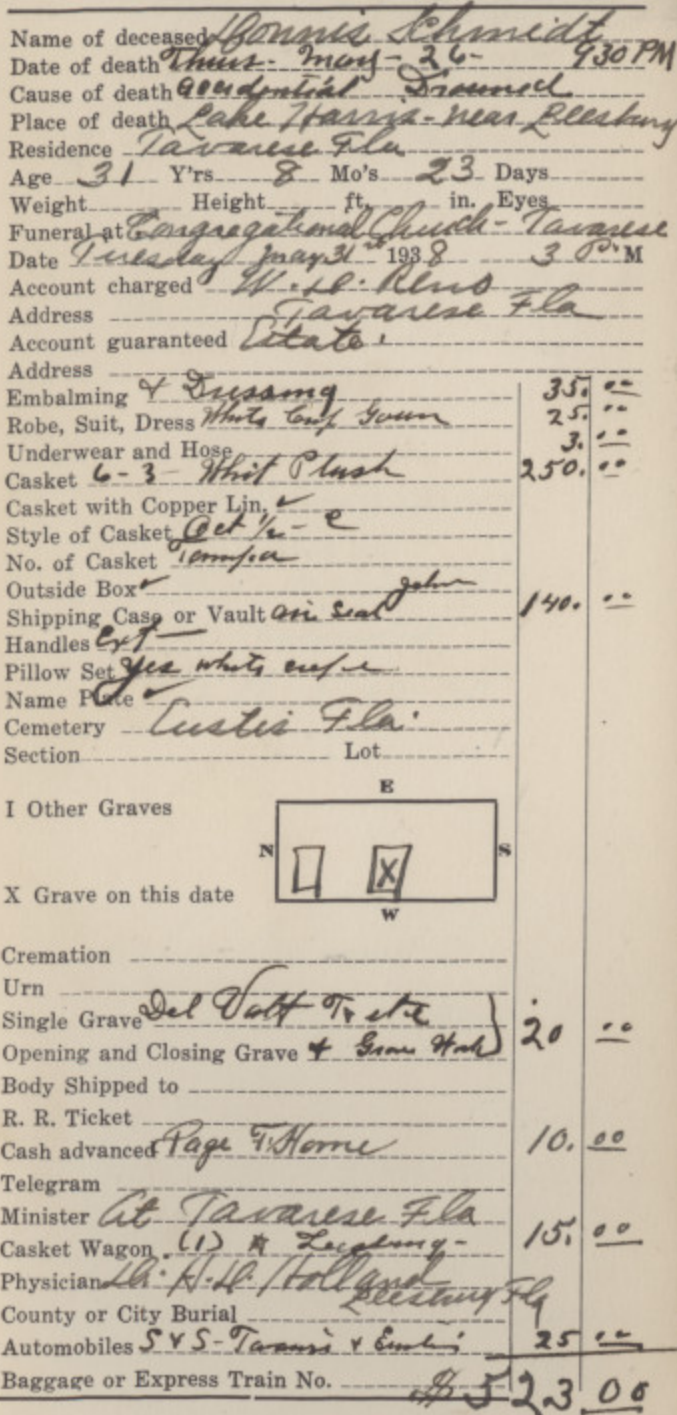 Name of deceased Connie Schmidt
Date of death Thurs - May - 26 - 930 PM
Cause of death accidential Drowned
Place of death Lake Harris - near Leesburg
Residence Tavarese Fla
Age 31 Y'rs 8 Mo's 23 Days
Weight Height ft. in. Eyes
Funeral at Congregational Church - Tavarese
Date Tuesday May 31st 1938 3 P.M
Account charged W. H. Reno
Address Tavarese Fla
Account guaranteed Estate.
Address
Embalming & Dressing 35. 00
Robe, Suit, Dress White Crep Gown 25. 00
Underwear and Hose 3. 00
Casket 6-3 Whit Plush 250. 00
Casket with Copper Lin. ✓
Style of Casket Oct 1/2 - C
No. of Casket Tampa
Outside Box ✓
Shipping Case or Vault air Seal John 140. 00
Handles Ext
Pillow Set Yes white crepe
Name Plate ✓
Cemetery Eustis Fla.
Section Lot
E
I Other Graves
N S
X
X Grave on this date
W
Cremation
Urn
Single Grave Del Valt
Opening and Closing Grave & Grave Work 20 00
Body Shipped to
R. R. Ticket
Cash advanced Page F. Home 10. 00
Telegram
Minister At Tavarese Fla
Casket Wagon (1) Leesburg - 15. 00
Physician Dr. H. D. Holland Leesburg Fla
County or City Burial
Automobiles S & S - Tavaris & Eustis 25 00
Baggage or Express Train No. $ 523 00